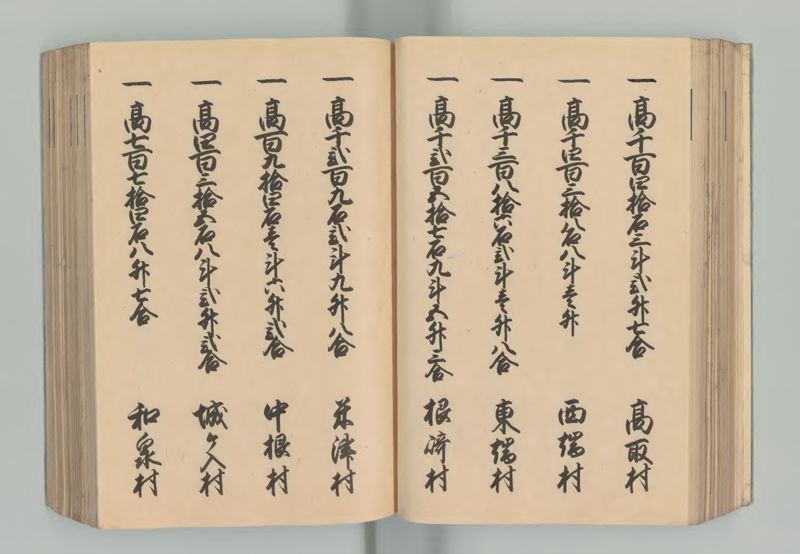 一高千百四拾石三斗弐升七合 高取村
一高千四百三拾八石八斗壱升 西端村
一高千三百八拾六石弐斗壱升八合 東端村
一高千弐百五拾七石九斗五升三合 根崎村
一高千弐百九石弐斗九升八合 米津村
一高百九拾四石壱斗六升弐合 中根村
一高四百三拾五石八斗弐升弐合 城ケ入村
一高七百七拾四石八升七合 和泉村